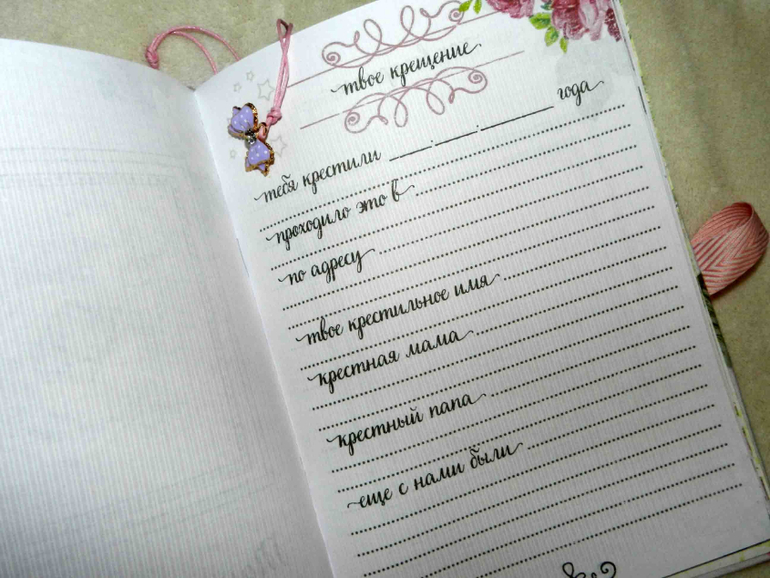 твое крещение
тебя крестили __.__.____ года
проходило это в
по адресу
твое крестильное имя
крестная мама
крестный папа
еще с нами были